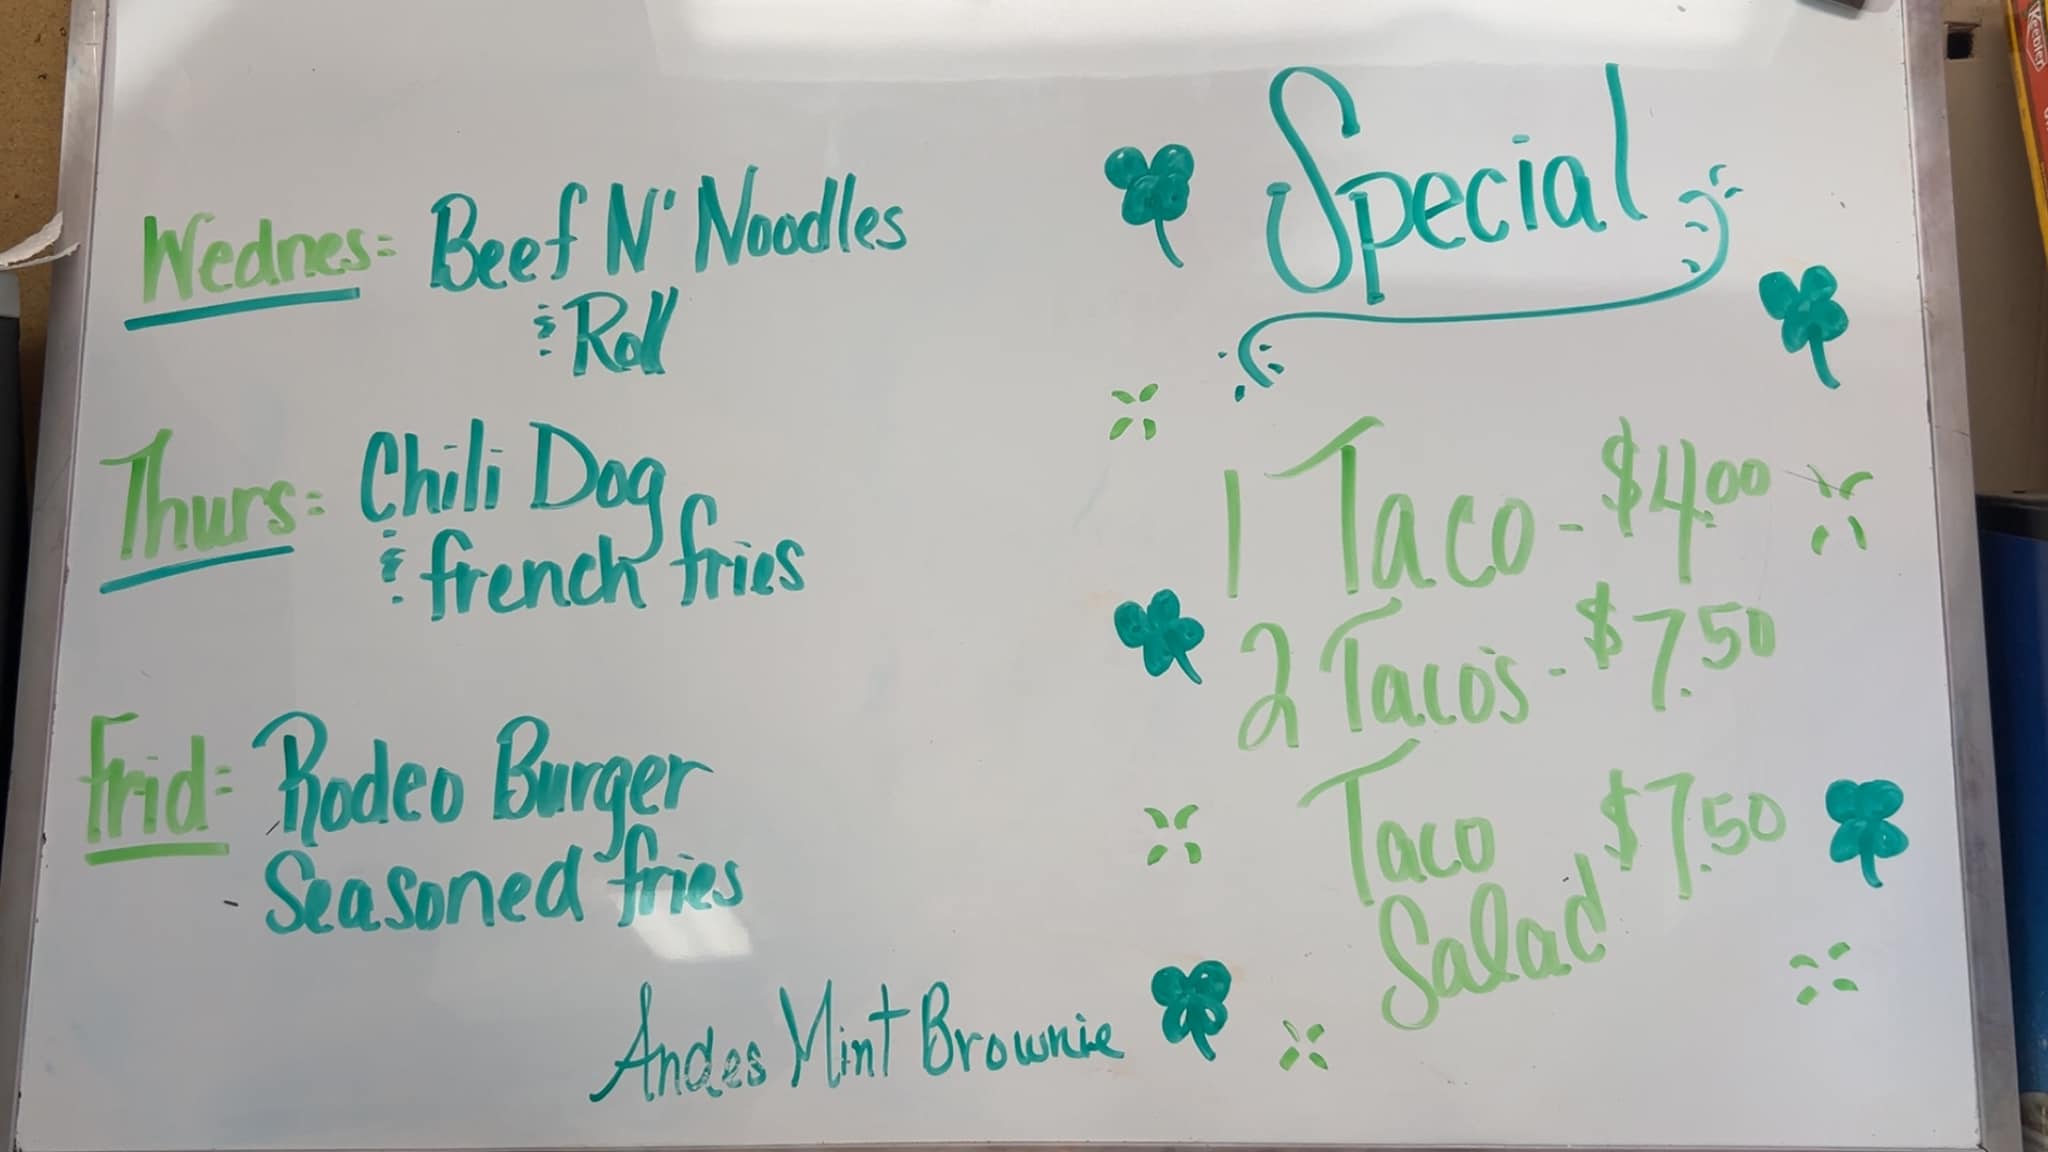 Wednes= Beef N' Noodles
& Roll
Thurs= Chili Dog
& french fries
Frid= Rodeo Burger
Seasoned fries
Andes Mint Brownie
Special
1 Taco - $4.00
2 Taco's - $7.50
Taco $7.50
Salad
Keebler